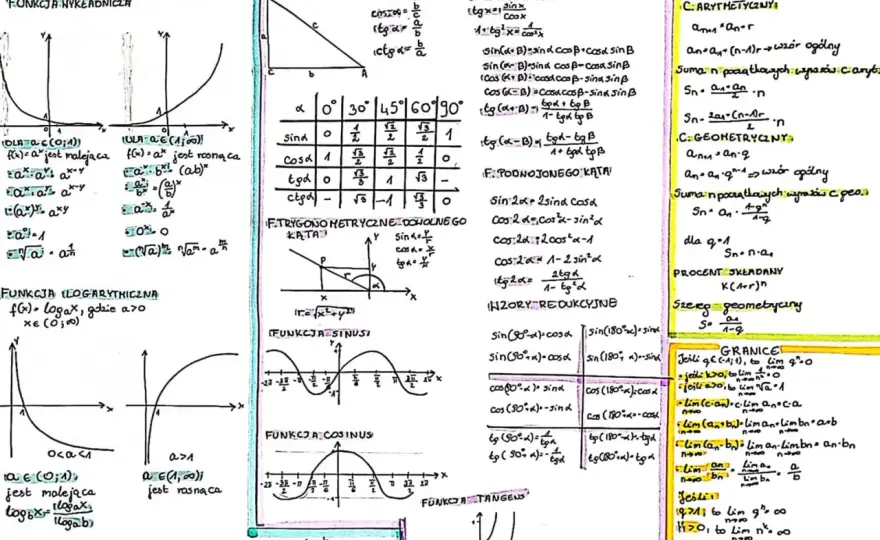 FUNKCJA WYKŁADNICZA
DLA a∈(0;1)
f(x)=aˣ jest malejąca
aˣ·aʸ= aˣ⁺ʸ
(aˣ)ʸ= aˣʸ
a⁰=1
DLA a∈(1;∞)
f(x)=aˣ jest rosnąca
aˣ·bˣ=(ab)ˣ
FUNKCJA LOGARYTMICZNA
f(x)= logₐx, gdzie a>0
x∈(0;∞)
0<a<1
a∈(0;1),
jest malejąca
a>1
a∈(1;∞)
jest rosnąca
c
a
C b A
cosα= b/c
tgα= a/b
ctgα= b/a
α 0° 30° 45° 60° 90°
sinα 0 1/2 √2/2 √3/2 1
cosα 1 √3/2 √2/2 1/2 0
tgα 0 √3/3 1 √3 –
ctgα – √3 1 √3/3 0
F. TRYGONOMETRYCZNE DOWOLNEGO
KĄTA
sinα= y/r
cosα= x/r
tgα= y/x
r=√x²+y²
FUNKCJA SINUS
FUNKCJA COSINUS
FUNKCJA TANGENS
tgx= sinx/cosx
1+tg²x= 1/cos²x
sin(α+β)=sinα cosβ+cosα sinβ
sin(α-β)=sinα cosβ-cosα sinβ
cos(α+β)=cosα cosβ-sinα sinβ
tg(α+β)= tgα+tgβ/1-tgα tgβ
tg(α-β)= tgα-tgβ/1+tgα tgβ
F. PODWOJONEGO KĄTA
sin2α=2sinα cosα
cos2α=cos²α-sin²α
cos2α=2cos²α-1
cos2α=1-2sin²α
tg2α= 2tgα/1-tg²α
WZORY REDUKCYJNE
sin(90°-α)=cosα
sin(90°+α)=cosα
cos(90°-α)=sinα
cos(90°+α)=-sinα
tg(90°-α)= 1/tgα
tg(90°+α)=- 1/tgα
sin(180°-α)=sinα
sin(180°+α)=-sinα
cos(180°-α)=-cosα
cos(180°+α)=-cosα
tg(180°-α)=-tgα
tg(180°+α)=tgα
C. ARYTMETYCZNY
aₙ₊₁=aₙ+r
aₙ=a₁+(n-1)r → wzór ogólny
Suma n początkowych wyrazów c. aryt.
Sₙ= a₁+aₙ/2 ·n
Sₙ= 2a₁+(n-1)r/2 ·n
C. GEOMETRYCZNY
aₙ₊₁=aₙ·q
aₙ=a₁·qⁿ⁻¹ → wzór ogólny
Suma n początkowych wyrazów c. geo.
Sₙ=a₁· 1-qⁿ/1-q
dla q=1
Sₙ=n·a₁
PROCENT SKŁADANY
K(1+r)ⁿ
Szereg geometryczny
S= a₁/1-q
GRANICE
Jeśli q∈(-1;1), to lim qⁿ=0
jeśli k>0, to lim 1/nᵏ=0
jeśli a>0, to lim ⁿ√a=1
lim(c·aₙ)=c·lim aₙ=c·a
lim(aₙ+bₙ)=lim aₙ+lim bₙ=a+b
lim(aₙ·bₙ)=lim aₙ·lim bₙ=
lim aₙ/bₙ= lim aₙ/lim bₙ = a/b
Jeśli:
q>1, to lim qⁿ=∞
k>0, to lim nᵏ=∞